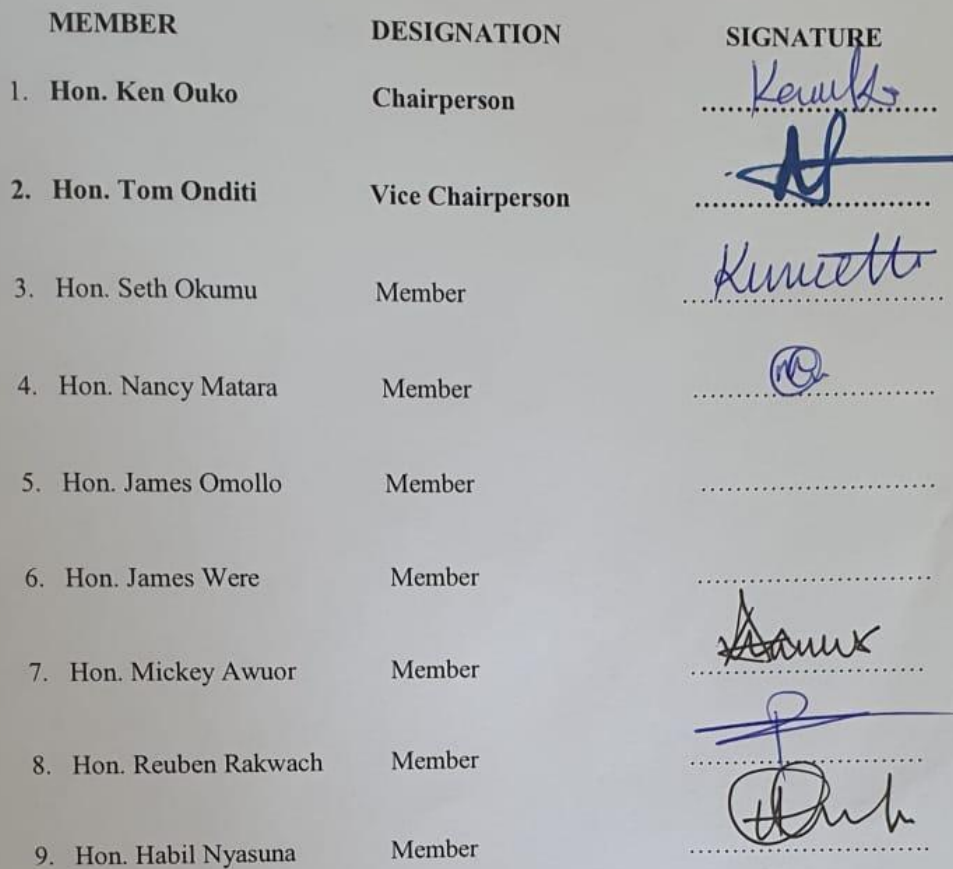 MEMBER DESIGNATION SIGNATURE
1. Hon. Ken Ouko Chairperson ........................
2. Hon. Tom Onditi Vice Chairperson ........................
3. Hon. Seth Okumu Member ........................
4. Hon. Nancy Matara Member ........................
5. Hon. James Omollo Member ........................
6. Hon. James Were Member ........................
7. Hon. Mickey Awuor Member ........................
8. Hon. Reuben Rakwach Member ........................
9. Hon. Habil Nyasuna Member ........................